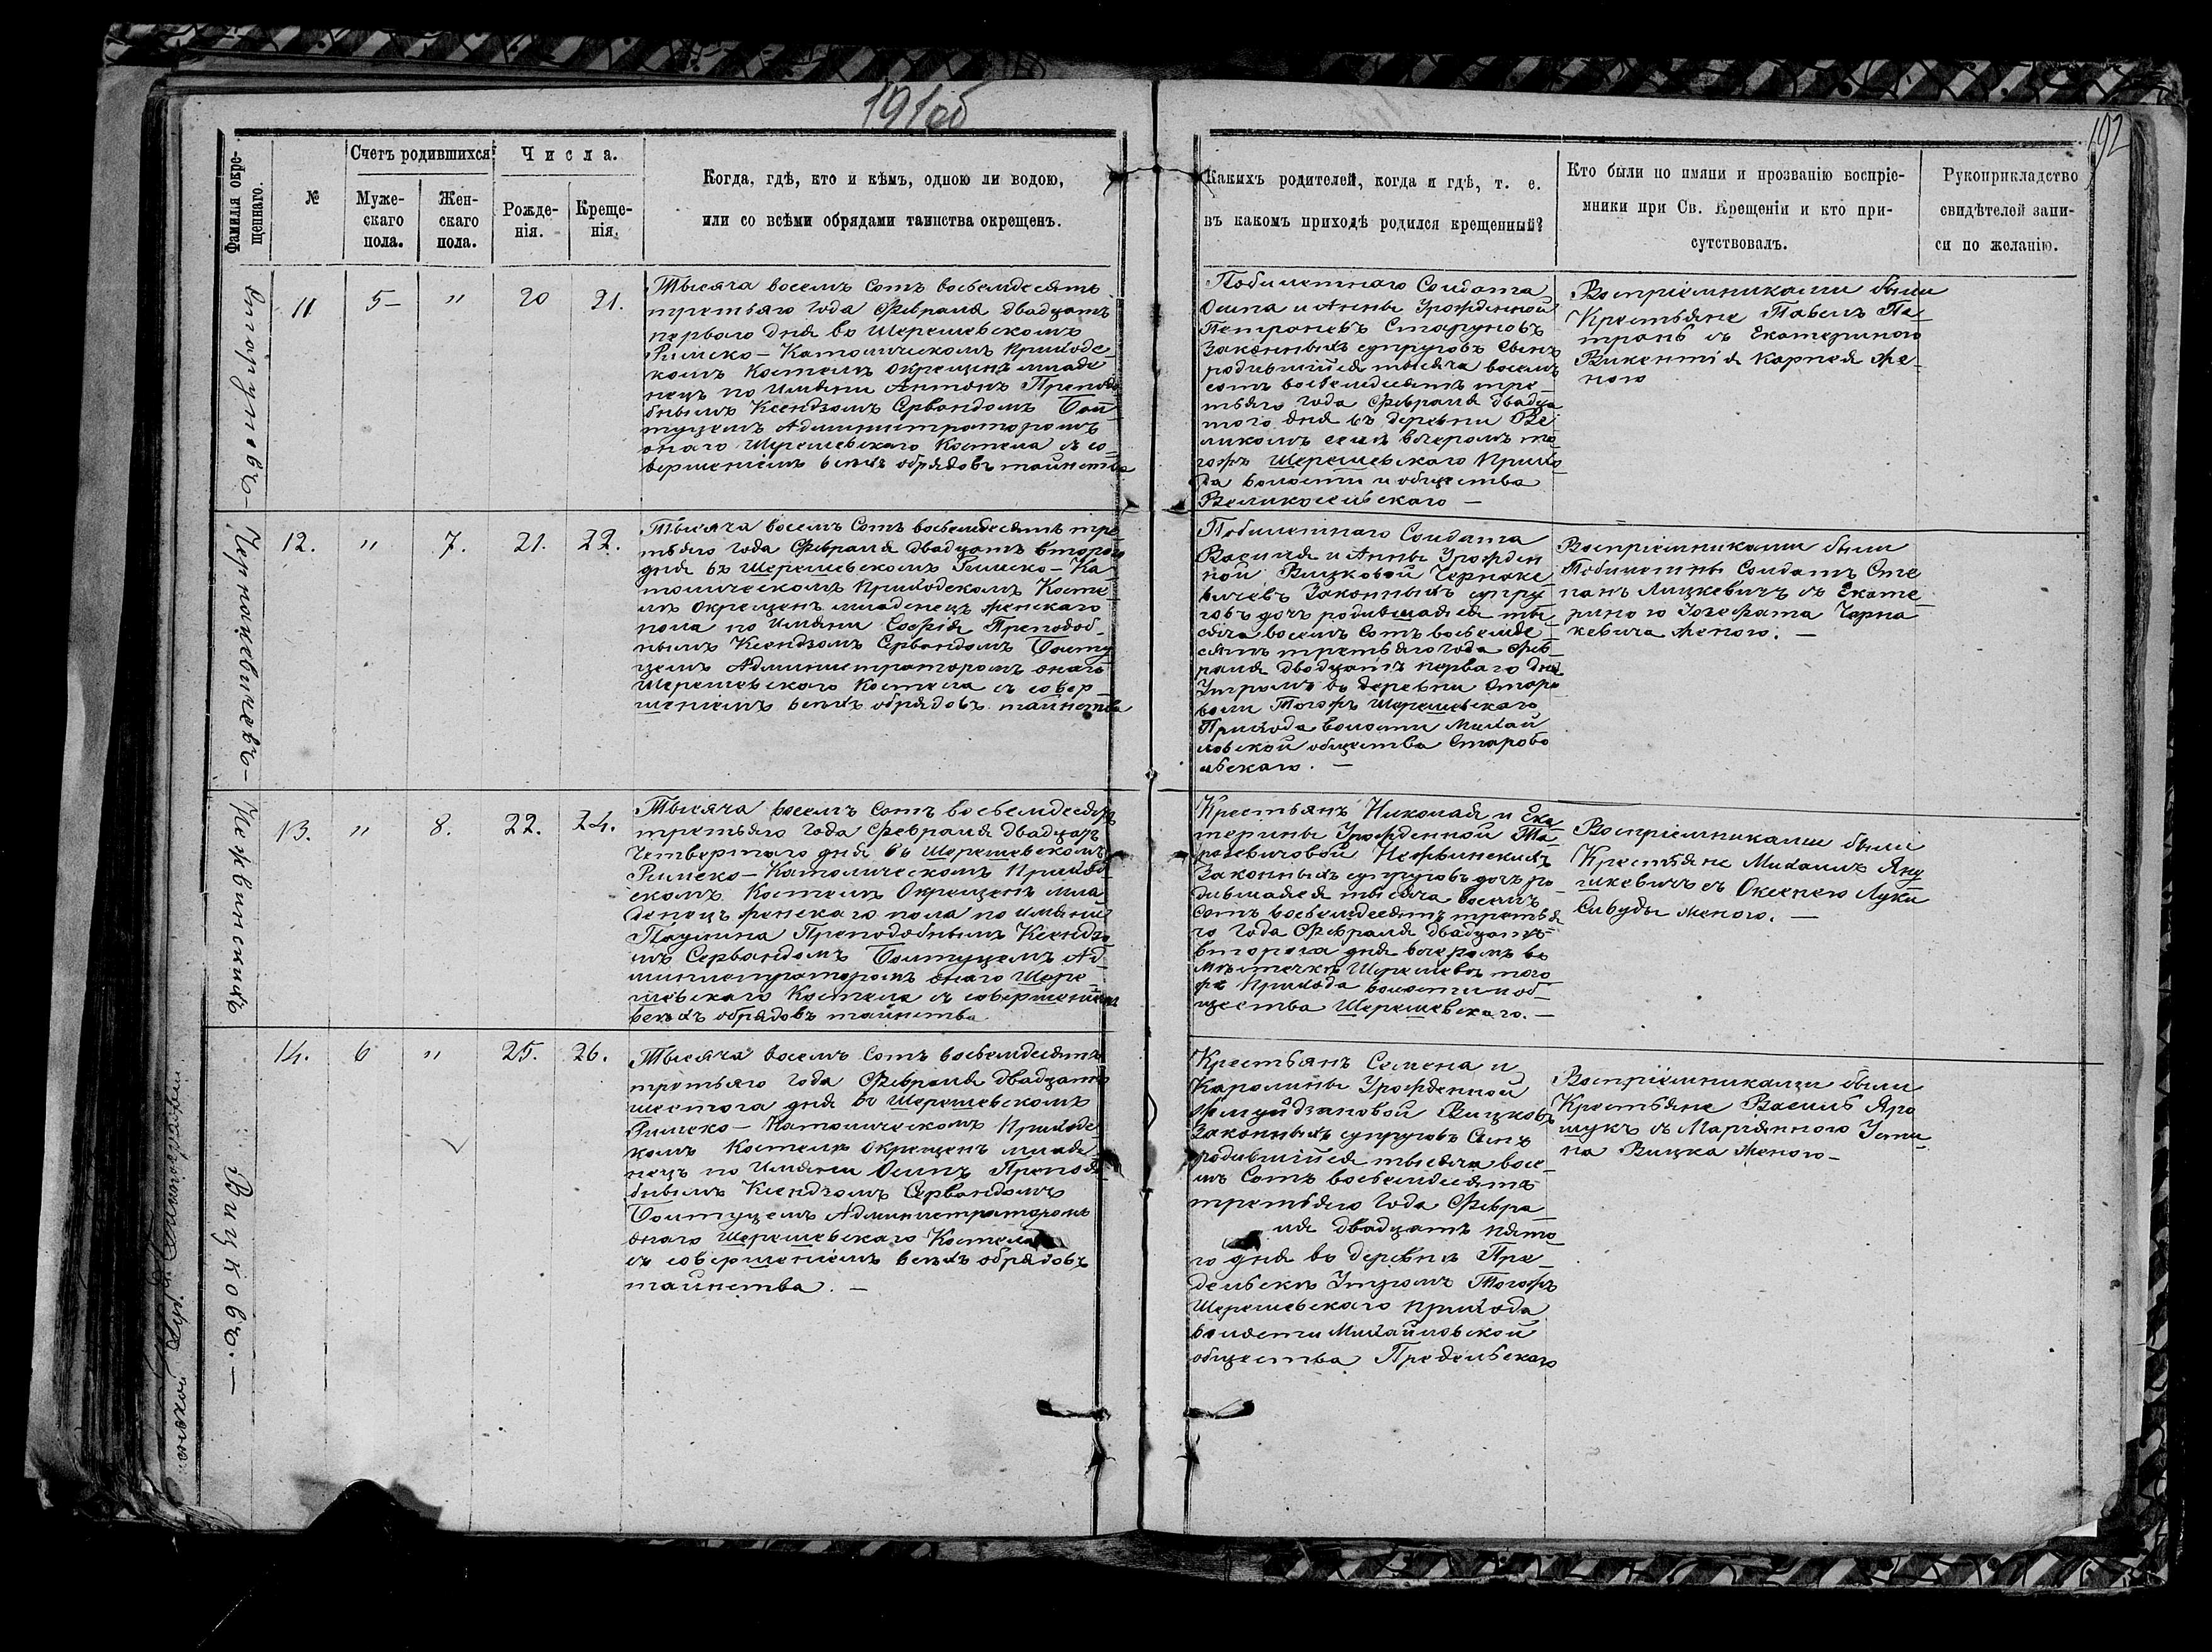 191об
192
Фамилія окре-
щеннаго.
№
Счетъ родившихся
Муже-
скаго
пола.
Жен-
скаго
пола.
Числа.
Рожде-
нія.
Креще-
нія.
Когда, гдѣ, кто и кѣмъ, одною ли водою,
или со всѣми обрядами таинства окрещенъ.
Какихъ родителей, когда и гдѣ, т. е.
въ какомъ приходѣ родился крещенный?
Кто были по имяни и прозванію воспріе-
мники при Св. Крещеніи и кто при-
сутствовалъ.
Рукоприкладство
свидѣтелей запи-
си по желанію.
Старуновъ—
11 5— " 20 21.
Тысяча восемъ Сотъ восьемдесятъ
третьяго Года Февраля двадцатъ
перваго дня во Шерешевскомъ
Римско-Католическомъ Приходс-
комъ Костелѣ окрещенъ младе
нецъ по Имяни Антонъ Преподо
бнымъ Ксендзомъ Сервандомъ Бол
туцемъ Администраторомъ
онаго Шерешевскаго Костела съ со-
вершеніемъ всѣхъ обрядовъ таинства
Побилетнаго Солдата
Осипа и Анны Урожденной
Петраневъ Старуновъ
Законныхъ супруговъ сынъ
родившійся тысяча восемъ
сотъ восьемдесятъ тре-
тьяго Года Февраля двадца
таго дня въ деревни Ве
ликомъ селѣ вечеромъ то
гожъ Шерешевскаго Прихо
да волости и общества
Великосельскаго —
Воспріемниками были
Крестьяне Павелъ Пе
трань съ Екатериною
Викентія Карпея же-
ною
Чернакевичевъ—
12. " 7. 21. 22.
Тысяча восемъ Сотъ восьемдесятъ тре-
тьяго Года Февраля двадцатъ втораго
дня въ Шерешевскомъ Римско-Ка
толическомъ Приходскомъ Косте
лѣ окрещенъ младенецъ женскаго
пола по Имяни Софія Преподоб-
нымъ Ксендзомъ Сервандомъ Болту
цемъ Администраторомъ онаго
Шерешевскаго Костела съ совер-
шеніемъ всѣхъ обрядовъ таинства
Побилетнаго Солдата
Василя и Анны Урожден
ной Вицковой Чернаке
вичевъ Законныхъ супру
говъ дочъ родившаяся ты
сяча восемъ Сотъ восьемде
сятъ третьяго года Фев-
раля двадцатъ перваго дня
Утромъ во деревни Старо
воли Тогожъ Шерешевскаго
Прихода волости Михай
ловской общества Старово
льскаго. —
Воспріемниками были
Побилетны Солдатъ Сте
панъ Лицкевичъ съ Екате
риною Іозефата Черна
кевича женою. —
Нежвинскихъ
13. " 8. 22. 24.
Тысяча восемъ Сотъ восьемдесятъ
третьяго Года Февраля двадцатъ
Четвертаго дня въ Шерешевскомъ
Римско-Католическомъ Приход
скомъ Костелѣ Окрещенъ мла
денецъ женскаго пола по имяни
Паулина Преподобнымъ Ксендзо
мъ Сервандомъ Болтуцемъ Ад-
министраторомъ онаго Шере-
шевскаго Костела съ совершеніемъ
всѣхъ обрядовъ таинства
Крестьянъ Николая и Ека
терины Урожденной Та
расевичовой Нежвинскихъ
Законныхъ супруговъ дочъ ро-
дившаяся тысяча восемъ
Сотъ восьемдесятъ третья
го Года Февраля двадцатъ-
втораго дня вечеромъ во
мѣстечкѣ Шерешевѣ того
жъ Прихода волости и об-
щества Шерешевскаго. —
Воспріемниками были
Крестьяне Михаилъ Яну
шкевичъ съ Оксенею Луки
Сивуды женою. —
Вицковъ.—
14. 6 " 25. 26.
Тысяча восемъ Сотъ восьемдесятъ
третьяго Года Февраля двадцатъ
шестаго дня во Шерешевскомъ
Римско-Католическомъ Приходс-
комъ Костелѣ окрещенъ младе
нецъ по Имяни Осипъ Преподо
бнымъ Ксендзомъ Сервандомъ
Болтуцемъ Администраторомъ
онаго Шерешевскаго Костела
съ совершеніемъ всѣхъ обрядовъ
таинства. —
Крестьянъ Семена и
Каролины Урожденной
Вицковъ
Законныхъ супруговъ Сынъ
родившійся тысяча восе-
мъ Сотъ восьемдесятъ
третьяго Года Февра-
ля двадцатъ пято
го дня во деревнѣ Пре-
дельскѣ Утромъ Тогожъ
Шерешевскаго прихода
волости Михайловской
общества Предельскаго
Воспріемниками были
Крестьяне Василь Яро
шукъ съ Марцянною Усти-
на Вицка женою—